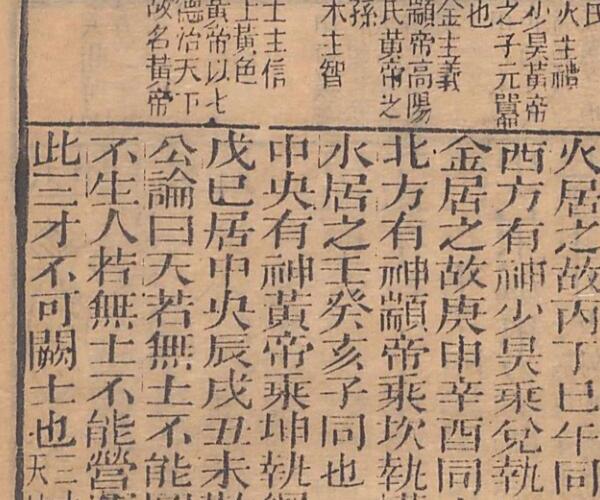 火主禮
少昊黃帝
之子元囂
也
金主義
顓帝高陽
氏黃帝之
孫
木主智
土主信
上黃色
黃帝以七
德治天下
故名黃帝
火居之故丙丁巳午同
西方有神少昊乘兌執
金居之故庚申辛酉同
北方有神顓帝乘坎執
水居之壬癸亥子同也
中央有神黃帝乘坤執
戊巳居中央辰戌丑未
公論曰天若無土不能
不生人若無土不能營
此三才不可闕土也三
天